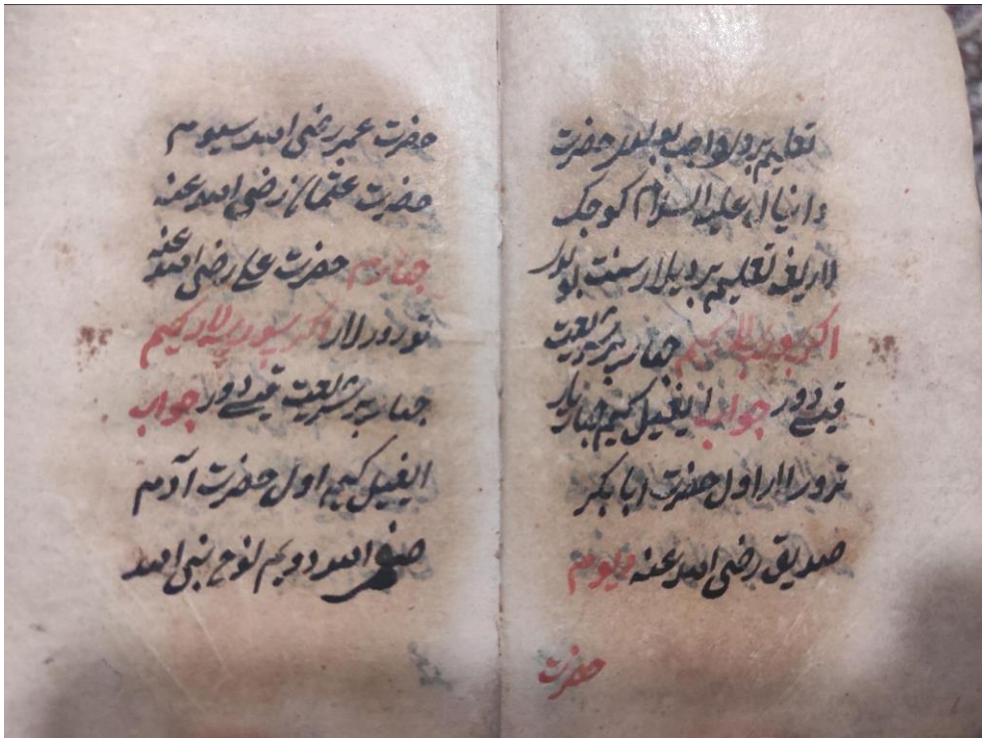 تعلیم بردیلار واجب بولدلار حضرت
دانیال علیه السلام کوجک
لاریغه تعلیم بردیلار سنت بولدلر
اکر سورسه‌لار کیم جهار بر شریعت
قیسے دور جواب ایغیل کیم جهار یار
تورورلار اول حضرت ابا بکر
صدیق رضی الله عنه دیوم
حضرت
حضرت عمر رضی الله سیوم
حضرت عثمان رضی الله عنه
جهارم حضرت علی رضی الله عنه
تورورلار اکر سورسه‌لار کیم
جهار بر شریعت قیسے دور جواب
ایغیل کیم اول حضرت آدم
صفی الله دویم نوح نبی الله